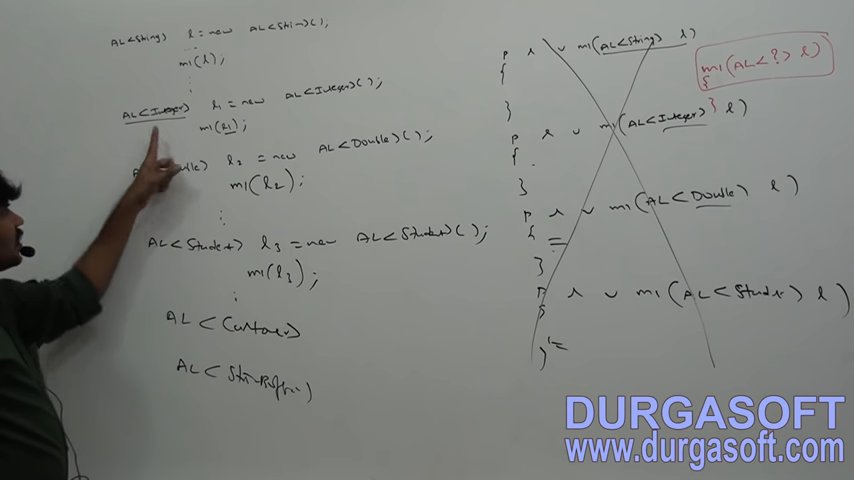 AL<String> l = new AL<String>();
m1(l);
AL<Integer> l1 = new AL<Integer>();
m1(l1);
l2 = new AL<Double>();
m1(l2);
AL<Student> l3 = new AL<Student>();
m1(l3);
AL<Customer>
AL<
p v m1(AL<String> l)
{
}
p v m1(AL<Integer> l)
{
}
p v m1(AL<Double> l)
{
}
p v m1(AL<Student> l)
{
}
m1(AL<?> l)
{
}
DURGASOFT
www.durgasoft.com